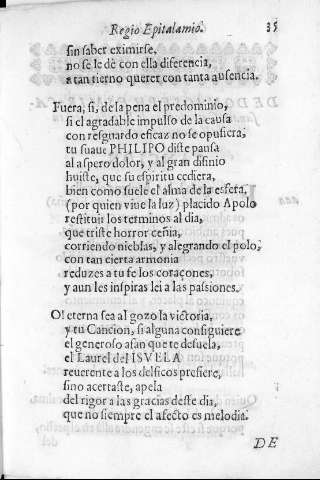 Regio Epitalamio. 35
sin saber eximirse,
no se le dè con ella diferencia,
a tan tierno querer con tanta ausencia.
Fuera, si, de la pena el predominio,
si el agradable impulso de la causa
con resguardo eficaz no se opusiera;
tu suaue PHILIPO diste pausa
al aspero dolor, y al gran disinio
huiste, que su espiritu cediera,
bien como suele el alma de la esfera,
(por quien viue la luz) placido Apolo
restituir los terminos al dia,
que triste horror ceñia,
corriendo nieblas, y alegrando el polo,
con tan cierta armonia
reduzes a tu fe los coraçones,
y aun les inspiras lei a las passiones.
O! eterna sea al gozo la victoria,
y tu Cancion, si alguna consiguiere
el generoso afan que te desuela,
el Laurel del ISVELA
reuerente a los delficos prefiere,
sino acertaste, apela
del rigor a las gracias deste dia,
que no siempre el afecto es melodia.
DE